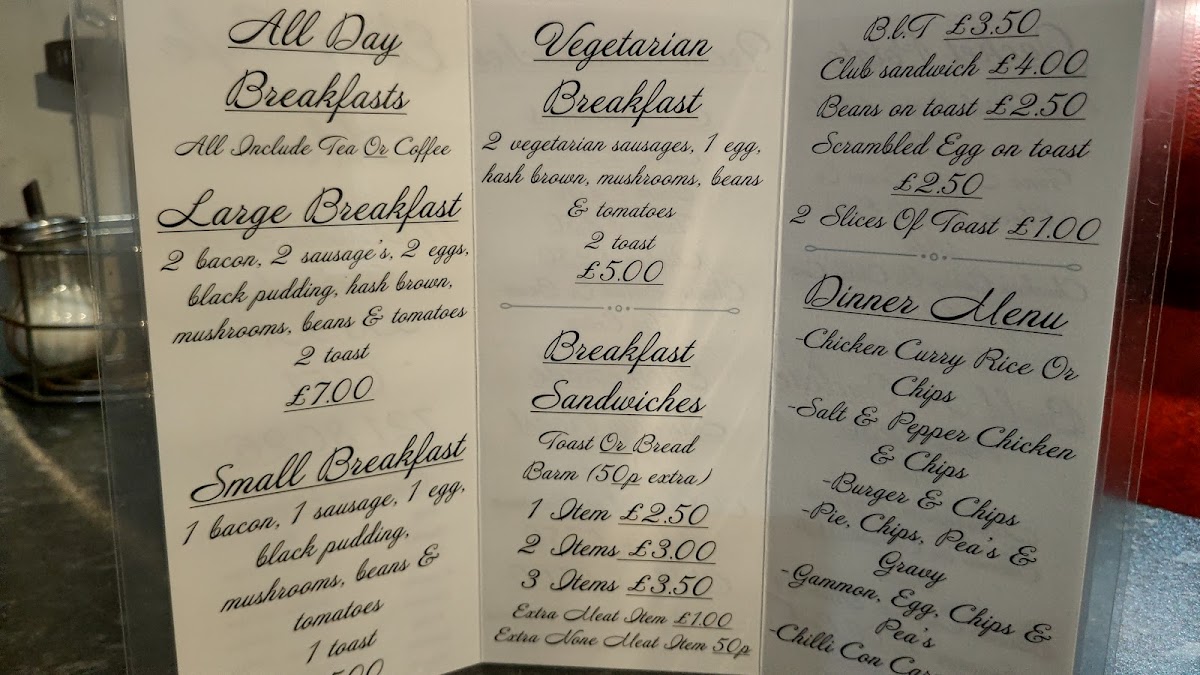 All Day
Breakfasts
All Include Tea Or Coffee
Large Breakfast
2 bacon, 2 sausage's, 2 eggs,
black pudding, hash brown,
mushrooms, beans & tomatoes
2 toast
£7.00
Small Breakfast
1 bacon, 1 sausage, 1 egg,
black pudding,
mushrooms, beans &
tomatoes
1 toast
Vegetarian
Breakfast
2 vegetarian sausages, 1 egg,
hash brown, mushrooms, beans
& tomatoes
2 toast
£5.00
Breakfast
Sandwiches
Toast Or Bread
Barm (50p extra)
1 Item £2.50
2 Items £3.00
3 Items £3.50
Extra Meat Item £1.00
Extra None Meat Item 50p
B.l.T £3.50
Club sandwich £4.00
Beans on toast £2.50
Scrambled Egg on toast
£2.50
2 Slices Of Toast £1.00
Dinner Menu
-Chicken Curry Rice Or
Chips
-Salt & Pepper Chicken
& Chips
-Burger & Chips
-Pie, Chips, Pea's &
Gravy
-Gammon, Egg, Chips &
Pea's
-Chilli Con